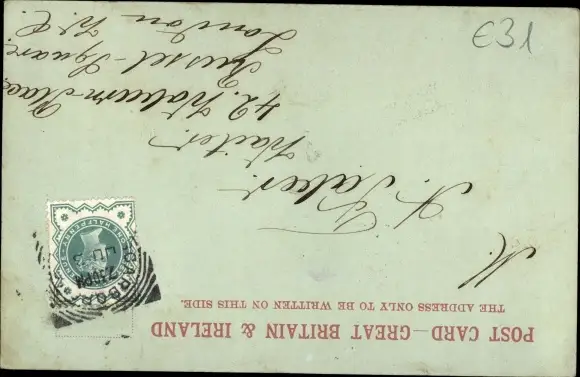 POST CARD—GREAT BRITAIN & IRELAND
THE ADDRESS ONLY TO BE WRITTEN ON THIS SIDE.
M.
Waiter.
42, Woburn Place
Russel-Square
London W.C.
HALFPENNY
230PM
€31